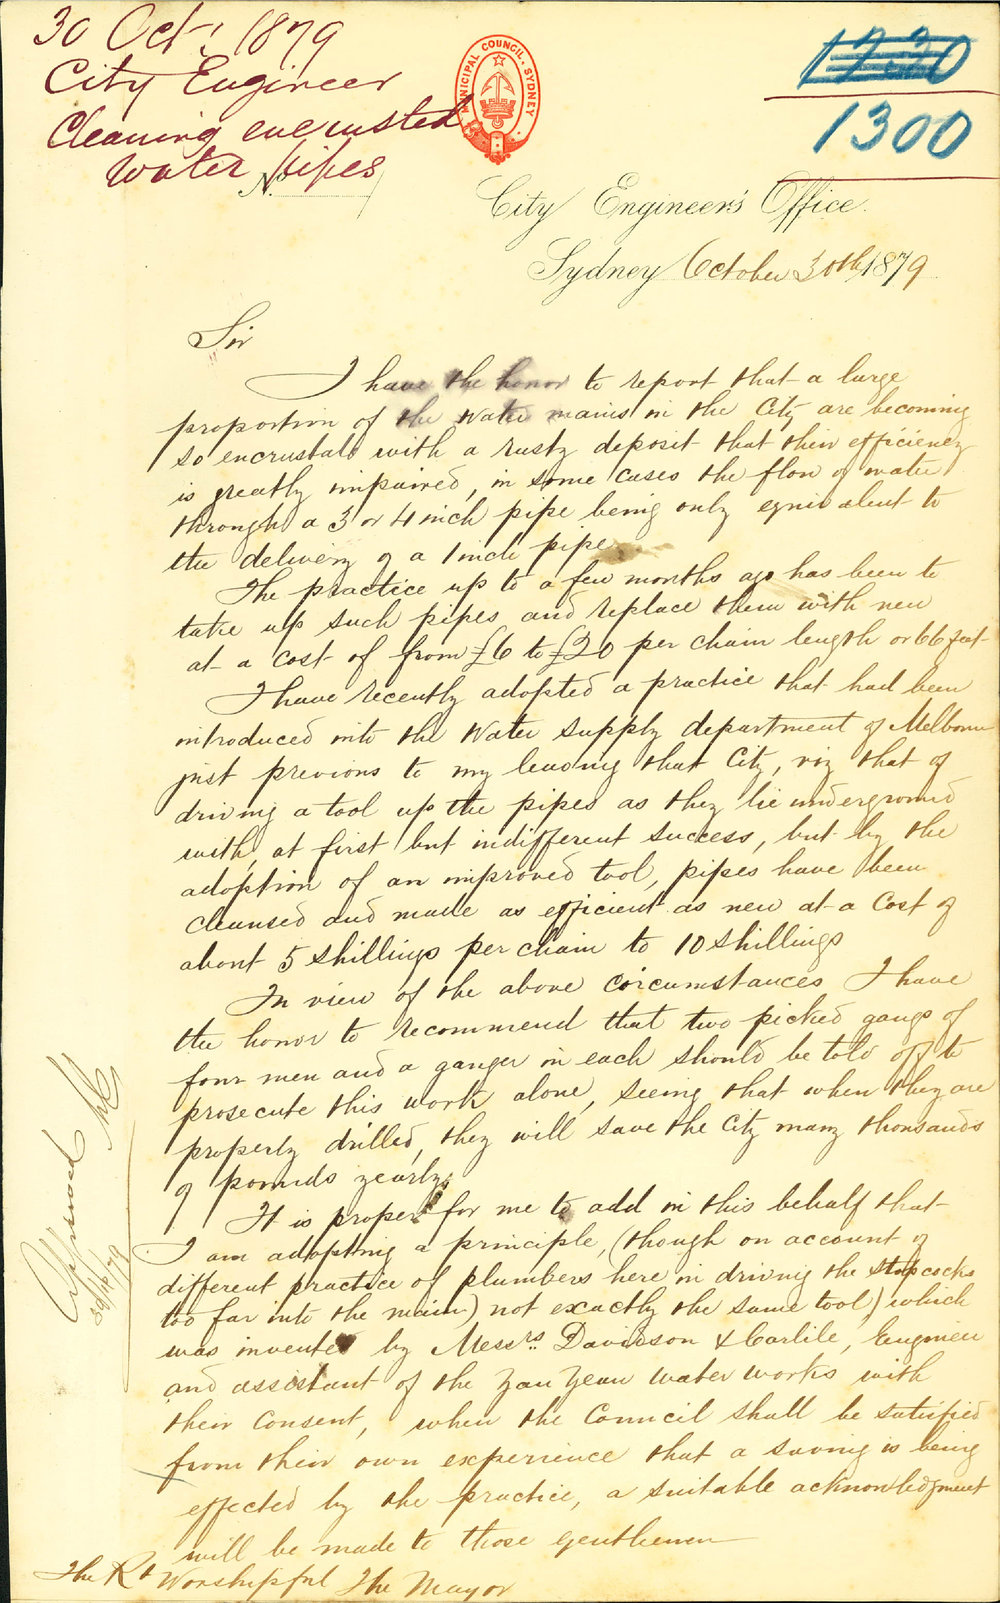 30 Oct. 1879
City Engineer
Cleaning encrusted
Water Pipes
MUNICIPAL COUNCIL. SYDNEY
1230
1300
No.
City Engineer's Office.
Sydney October 30th 1879
Sir
I have the honor to report that a large
proportion of the Water mains in the City are becoming
so encrustated with a rusty deposit that their efficiency
is greatly impaired, in some cases the flow of water
through a 3 or 4 inch pipe being only equivalent to
the delivery of a 1 inch pipe
The practice up to a few months ago has been to
take up such pipes and replace them with new
at a cost of from £6 to £20 per chain length or 66 feet
I have recently adopted a practice that had been
introduced into the Water Supply department of Melbourne
just previous to my leaving that City, viz that of
driving a tool up the pipes as they lie underground
with, at first but indifferent success, but by the
adoption of an improved tool, pipes have been
cleansed and made as efficient as new at a Cost of
about 5 shillings per chain to 10 shillings
In view of the above circumstances I have
the honor to recommend that two picked gangs of
four men and a ganger in each should be told off to
prosecute this work alone, seeing that when they are
properly drilled, they will save the City many thousands
of pounds yearly.
It is proper for me to add in this behalf that
I am adopting a principle, (though on account of
different practice of plumbers here in driving the stopcocks
too far into the main) not exactly the same tool) which
was invented by Messrs. Davidson & Carlile, Engineer
and assistant of the Yan Yean Water Works with
their Consent, when the Council shall be satisfied
from their own experience that a saving is being
effected by the practice, a suitable acknowledgment
will be made to those gentlemen
The Rt Worshipful The Mayor
Approved
30/10/79